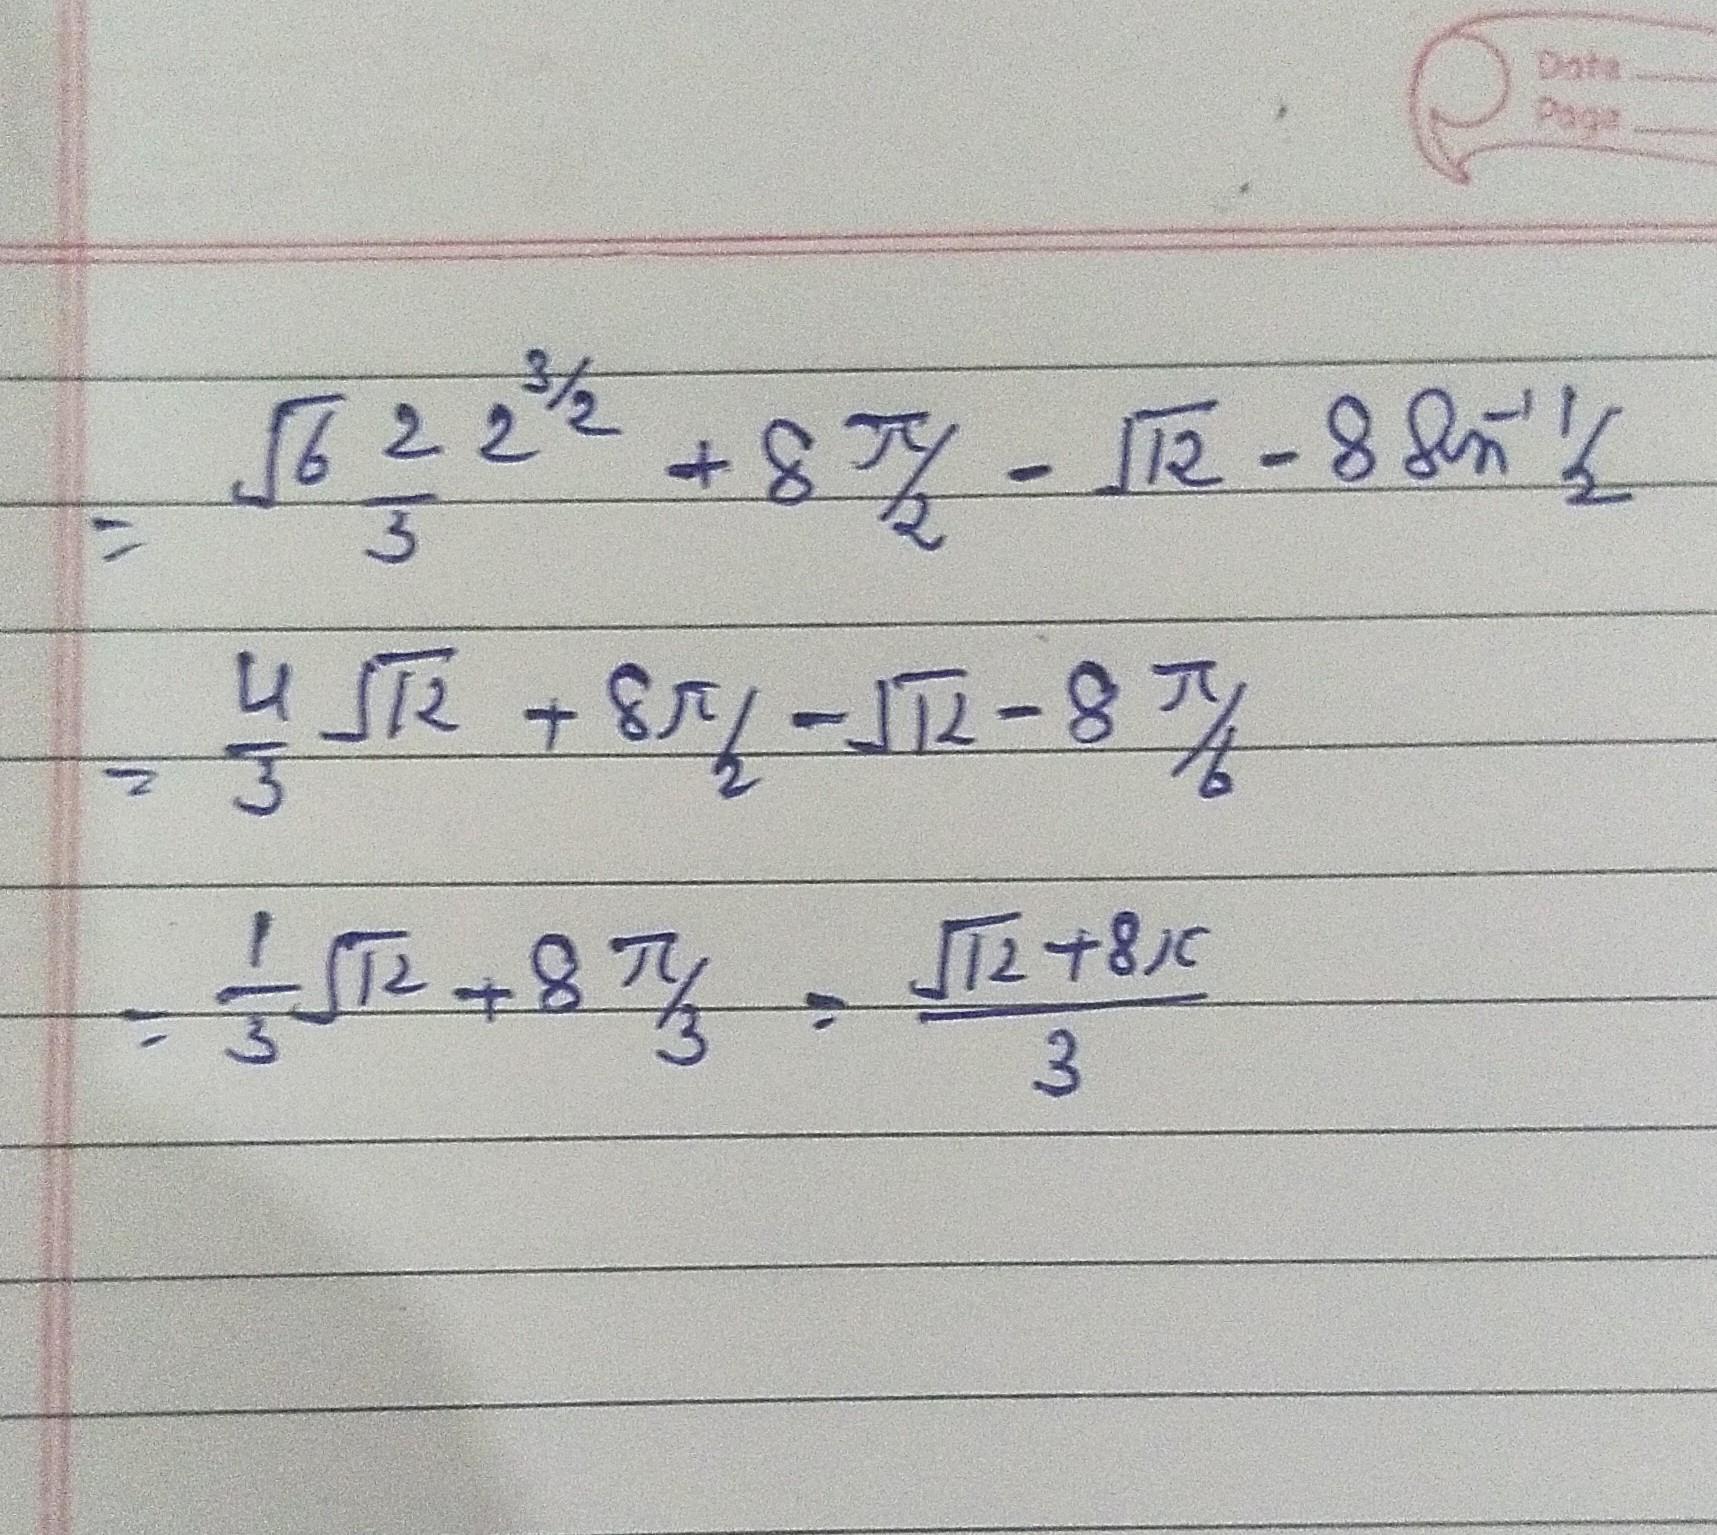 Date
Page
= √6 2/3 2^3/2 + 8 π/2 - √12 - 8 Sin⁻¹ 1/2
= 4/3 √12 + 8π/2 - √12 - 8 π/6
= 1/3 √12 + 8 π/3 = (√12 + 8π)/3